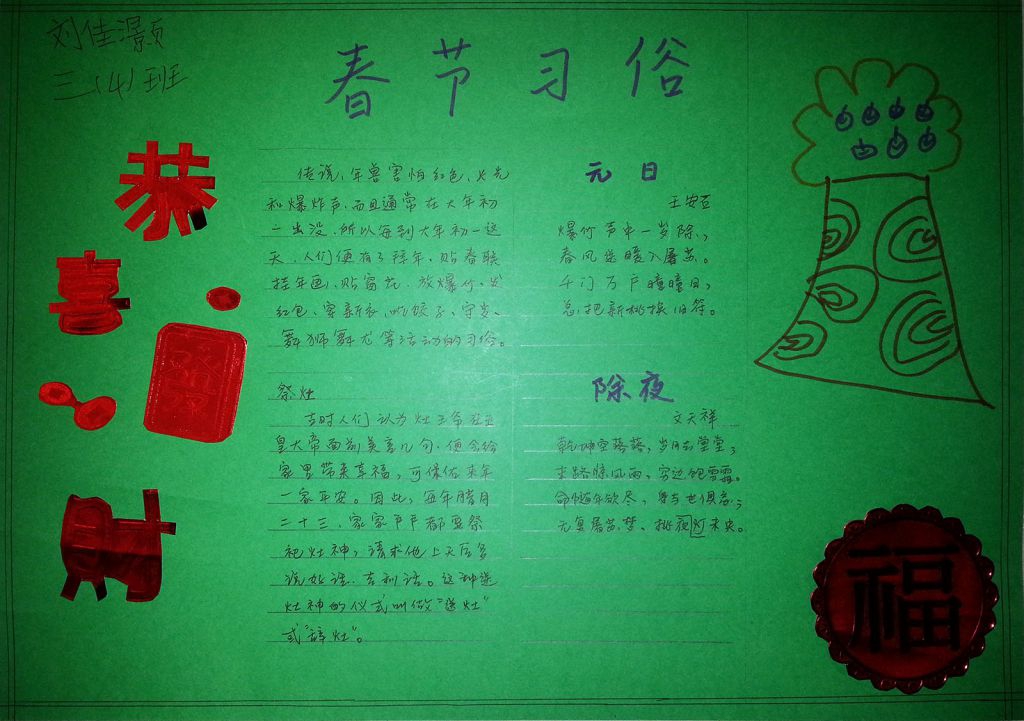 刘佳灏
三(4)班
春节习俗
恭
喜
發
财
传说,年兽害怕红色、火光
和爆炸声,而且通常在大年初
一出没,所以每到大年初一这
天,人们便有了拜年、贴春联
挂年画、贴窗花、放爆竹、发
红包、穿新衣、吃饺子、守岁、
舞狮舞龙等活动的习俗。
祭灶
古时人们认为灶王爷在玉
皇大帝面前美言几句,便会给
家里带来幸福,可保佑来年
一家平安。因此,每年腊月
二十三,家家户户都要祭
祀灶神,请求他上天后多
说好话、吉利话。这种送
灶神的仪式叫做“送灶”
或“辞灶”。
元日
王安石
爆竹声中一岁除,
春风送暖入屠苏。
千门万户曈曈日,
总把新桃换旧符。
除夜
文天祥
乾坤空落落,岁月去堂堂;
末路惊风雨,穷边饱雪霜。
命随年欲尽,身与世俱忘;
无复屠苏梦,挑夜灯未央。
福